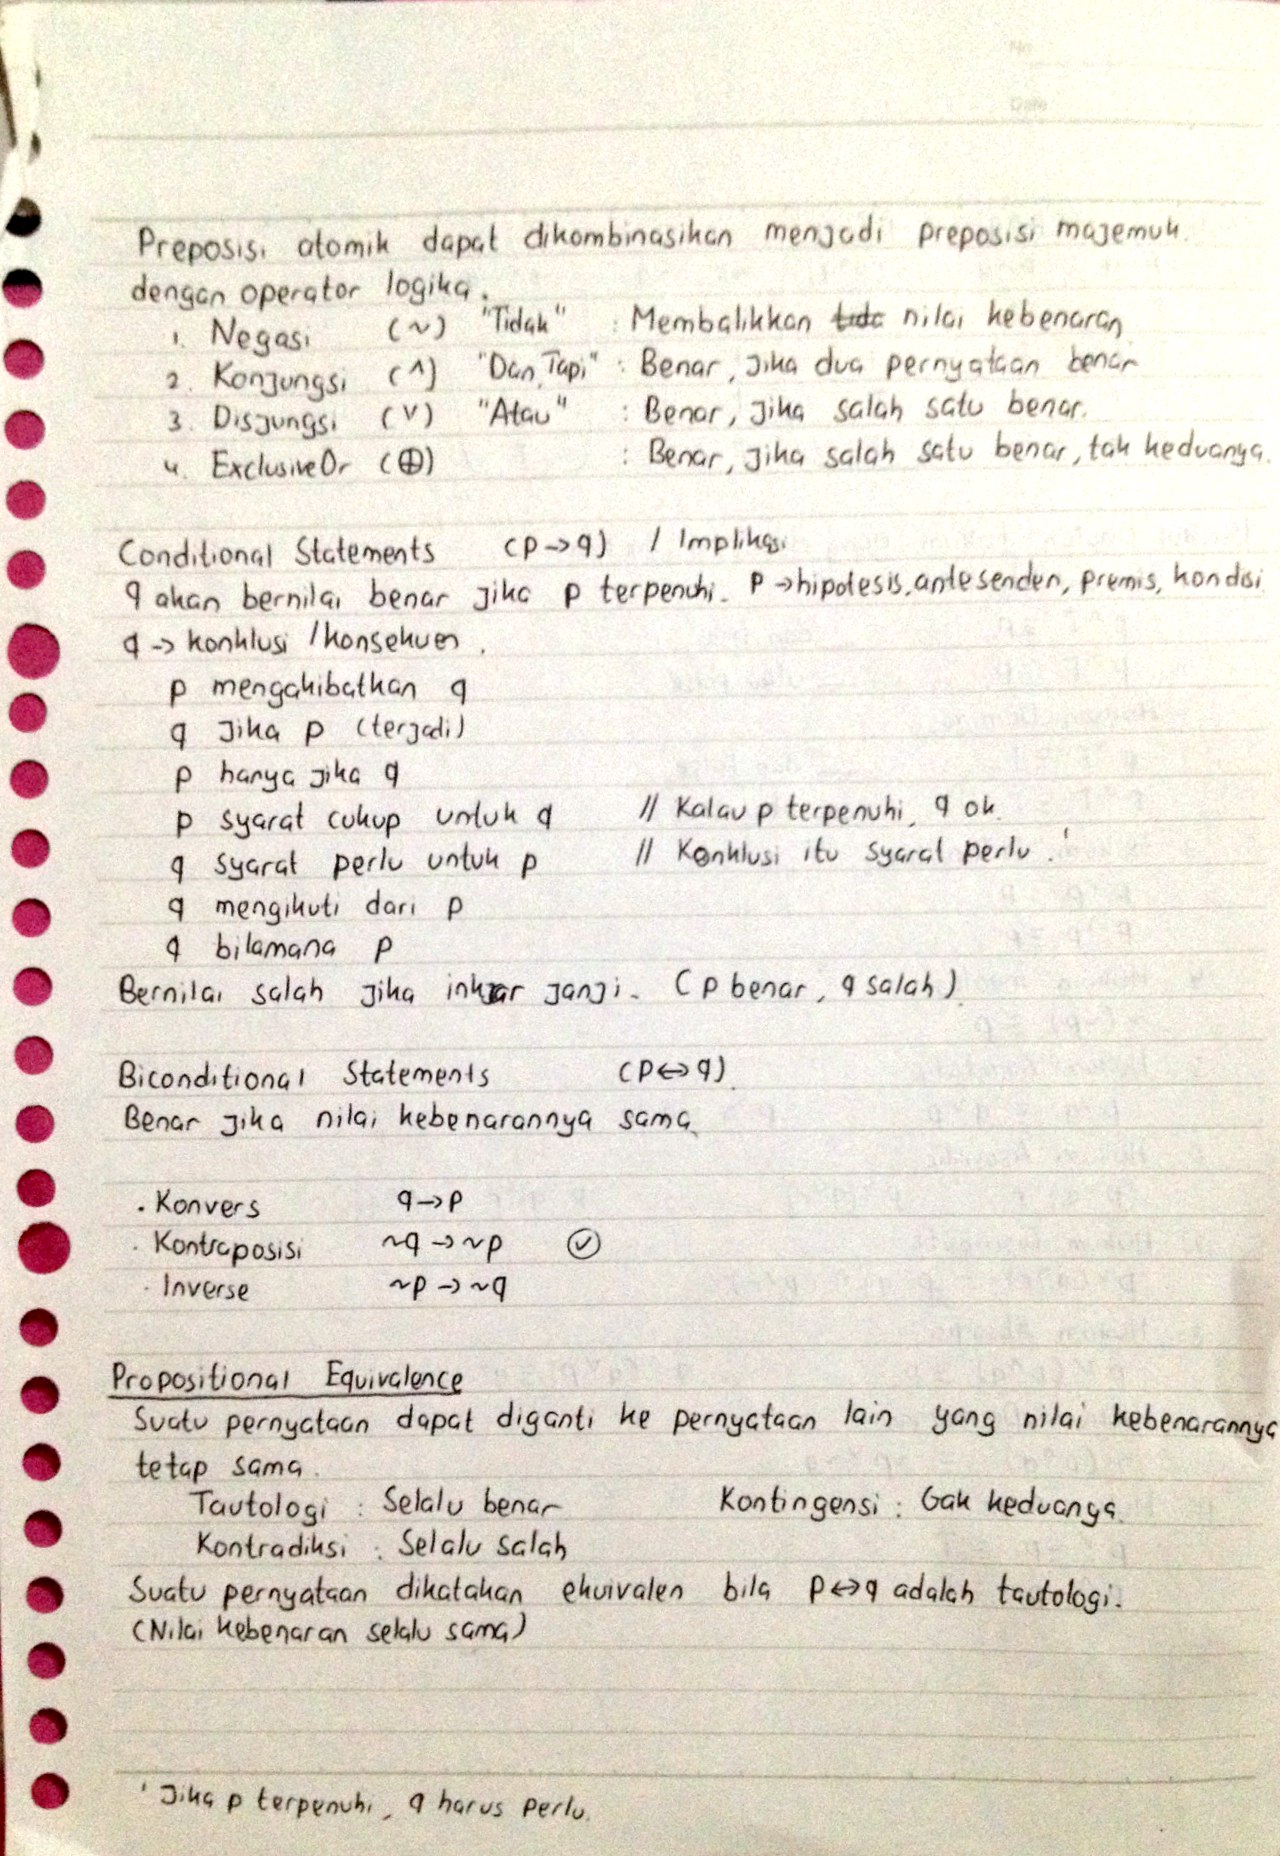 No
Date
Preposisi atomik dapat dikombinasikan menjadi preposisi majemuk.
dengan operator logika.
1. Negasi (~) "Tidak" : Membalikkan nilai kebenaran
2. Konjungsi (^) "Dan, Tapi" : Benar, jika dua pernyataan benar
3. Disjungsi (v) "Atau" : Benar, jika salah satu benar.
4. Exclusive Or (⊕) : Benar, jika salah satu benar, tak keduanya.
Conditional Statements (p → q) / Implikasi
q akan bernilai benar jika p terpenuhi. p → hipotesis, antesenden, premis, kondisi
q → konklusi / konsekuen.
p mengakibatkan q
q jika p (terjadi)
p hanya jika q
p syarat cukup untuk q // Kalau p terpenuhi, q ok.
q syarat perlu untuk p // Konklusi itu syarat perlu.¹
q mengikuti dari p
q bilamana p
Bernilai salah jika inkar janji. (p benar, q salah)
Biconditional Statements (p ↔ q).
Benar jika nilai kebenarannya sama.
· Konvers q → p
· Kontraposisi ~q → ~p ✓
· Inverse ~p → ~q
Propositional Equivalence
Suatu pernyataan dapat diganti ke pernyataan lain yang nilai kebenarannya
tetap sama.
Tautologi : Selalu benar Kontingensi : Gak keduanya.
Kontradiksi : Selalu salah
Suatu pernyataan dikatakan ekuivalen bila p ↔ q adalah tautologi.
(Nilai kebenaran selalu sama)
¹ Jika p terpenuhi, q harus perlu.